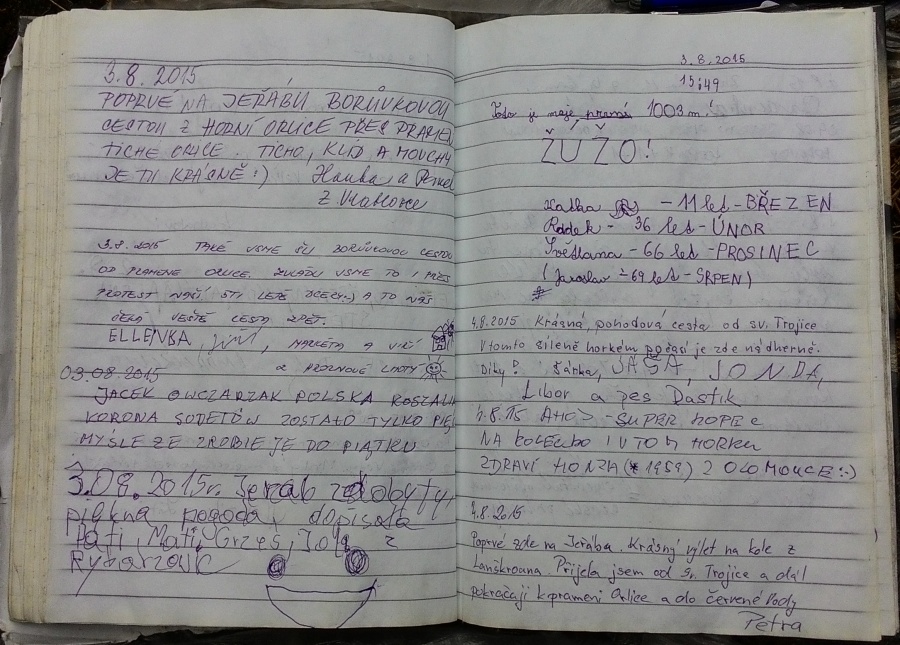 3.8.2015
POPRVÉ NA JEŘÁBU BORŮVKOVOU
CESTOU Z HORNÍ ORLICE PŘES PRAMEN
TICHÉ ORLICE. TICHO, KLID A MOUCHY
JE TU KRÁSNĚ :) Hanka a
Z
3.8.2015 TAKÉ JSME ŠLI BORŮVKOVOU CESTOU
OD PRAMENE ORLICE. ZVLÁDLI JSME TO I PŘES
PROTEST NAŠÍ 5TI LETÉ DCERY:) A TO NÁS
ČEKÁ JEŠTĚ CESTA ZPĚT.
ELLENKA, Jiří, MARKÉTA A
a
03.08.2015
JACEK OWCZARZAK POLSKA KOSZALIN
KORONA SUDETÓW ZOSTAŁO TYLKO PIĘĆ
MYŚLĘ ŻE ZROBIĘ JE DO PIĄTKU
3.08.2015r. Jeřab zdobyty,
piękna pogoda, dopisała
Pati, Mati, Grześ, Jola z
3.8.2015
15:49
Toto je moje první 1003 m!
ŽŮŽO!
Katka – 11 let – BŘEZEN
Radek – 36 let – ÚNOR
Světlana – 66 let – PROSINEC
(Jaroslav – 69 let – SRPEN)
4.8.2015 Krásná, pohodová cesta od sv. Trojice
V tomto šíleně horkém počasí je zde nádherně.
Díky! Šárka, JÁŠA, JONDA,
Libor a pes Dastik
4.8.15 AHOJ – SUPER KOPEC
NA KOLE I V TOM HORKU
ZDRAVÍ HONZA (*1959) Z OLOMOUCE :-)
4.8.2015
Poprvé zde na Jeřábu. Krásný výlet na kole z
Lanškrouna. Přijela jsem od sv. Trojice a dál
pokračuji k prameni Orlice a do Červené Vody
Petra